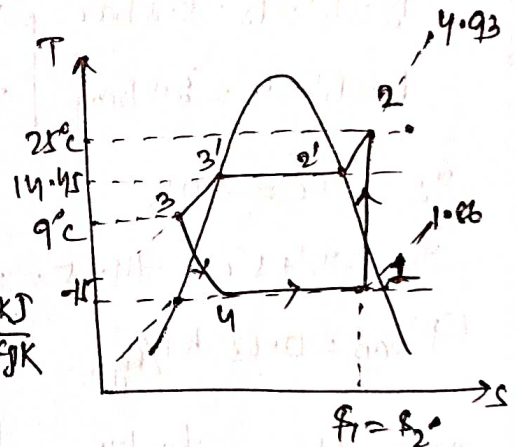 4.93
T
2
25°C
3'
2'
14.45
3
9°C
1.86
1
-15
4
KJ
kgK
S
S₁ = S₂